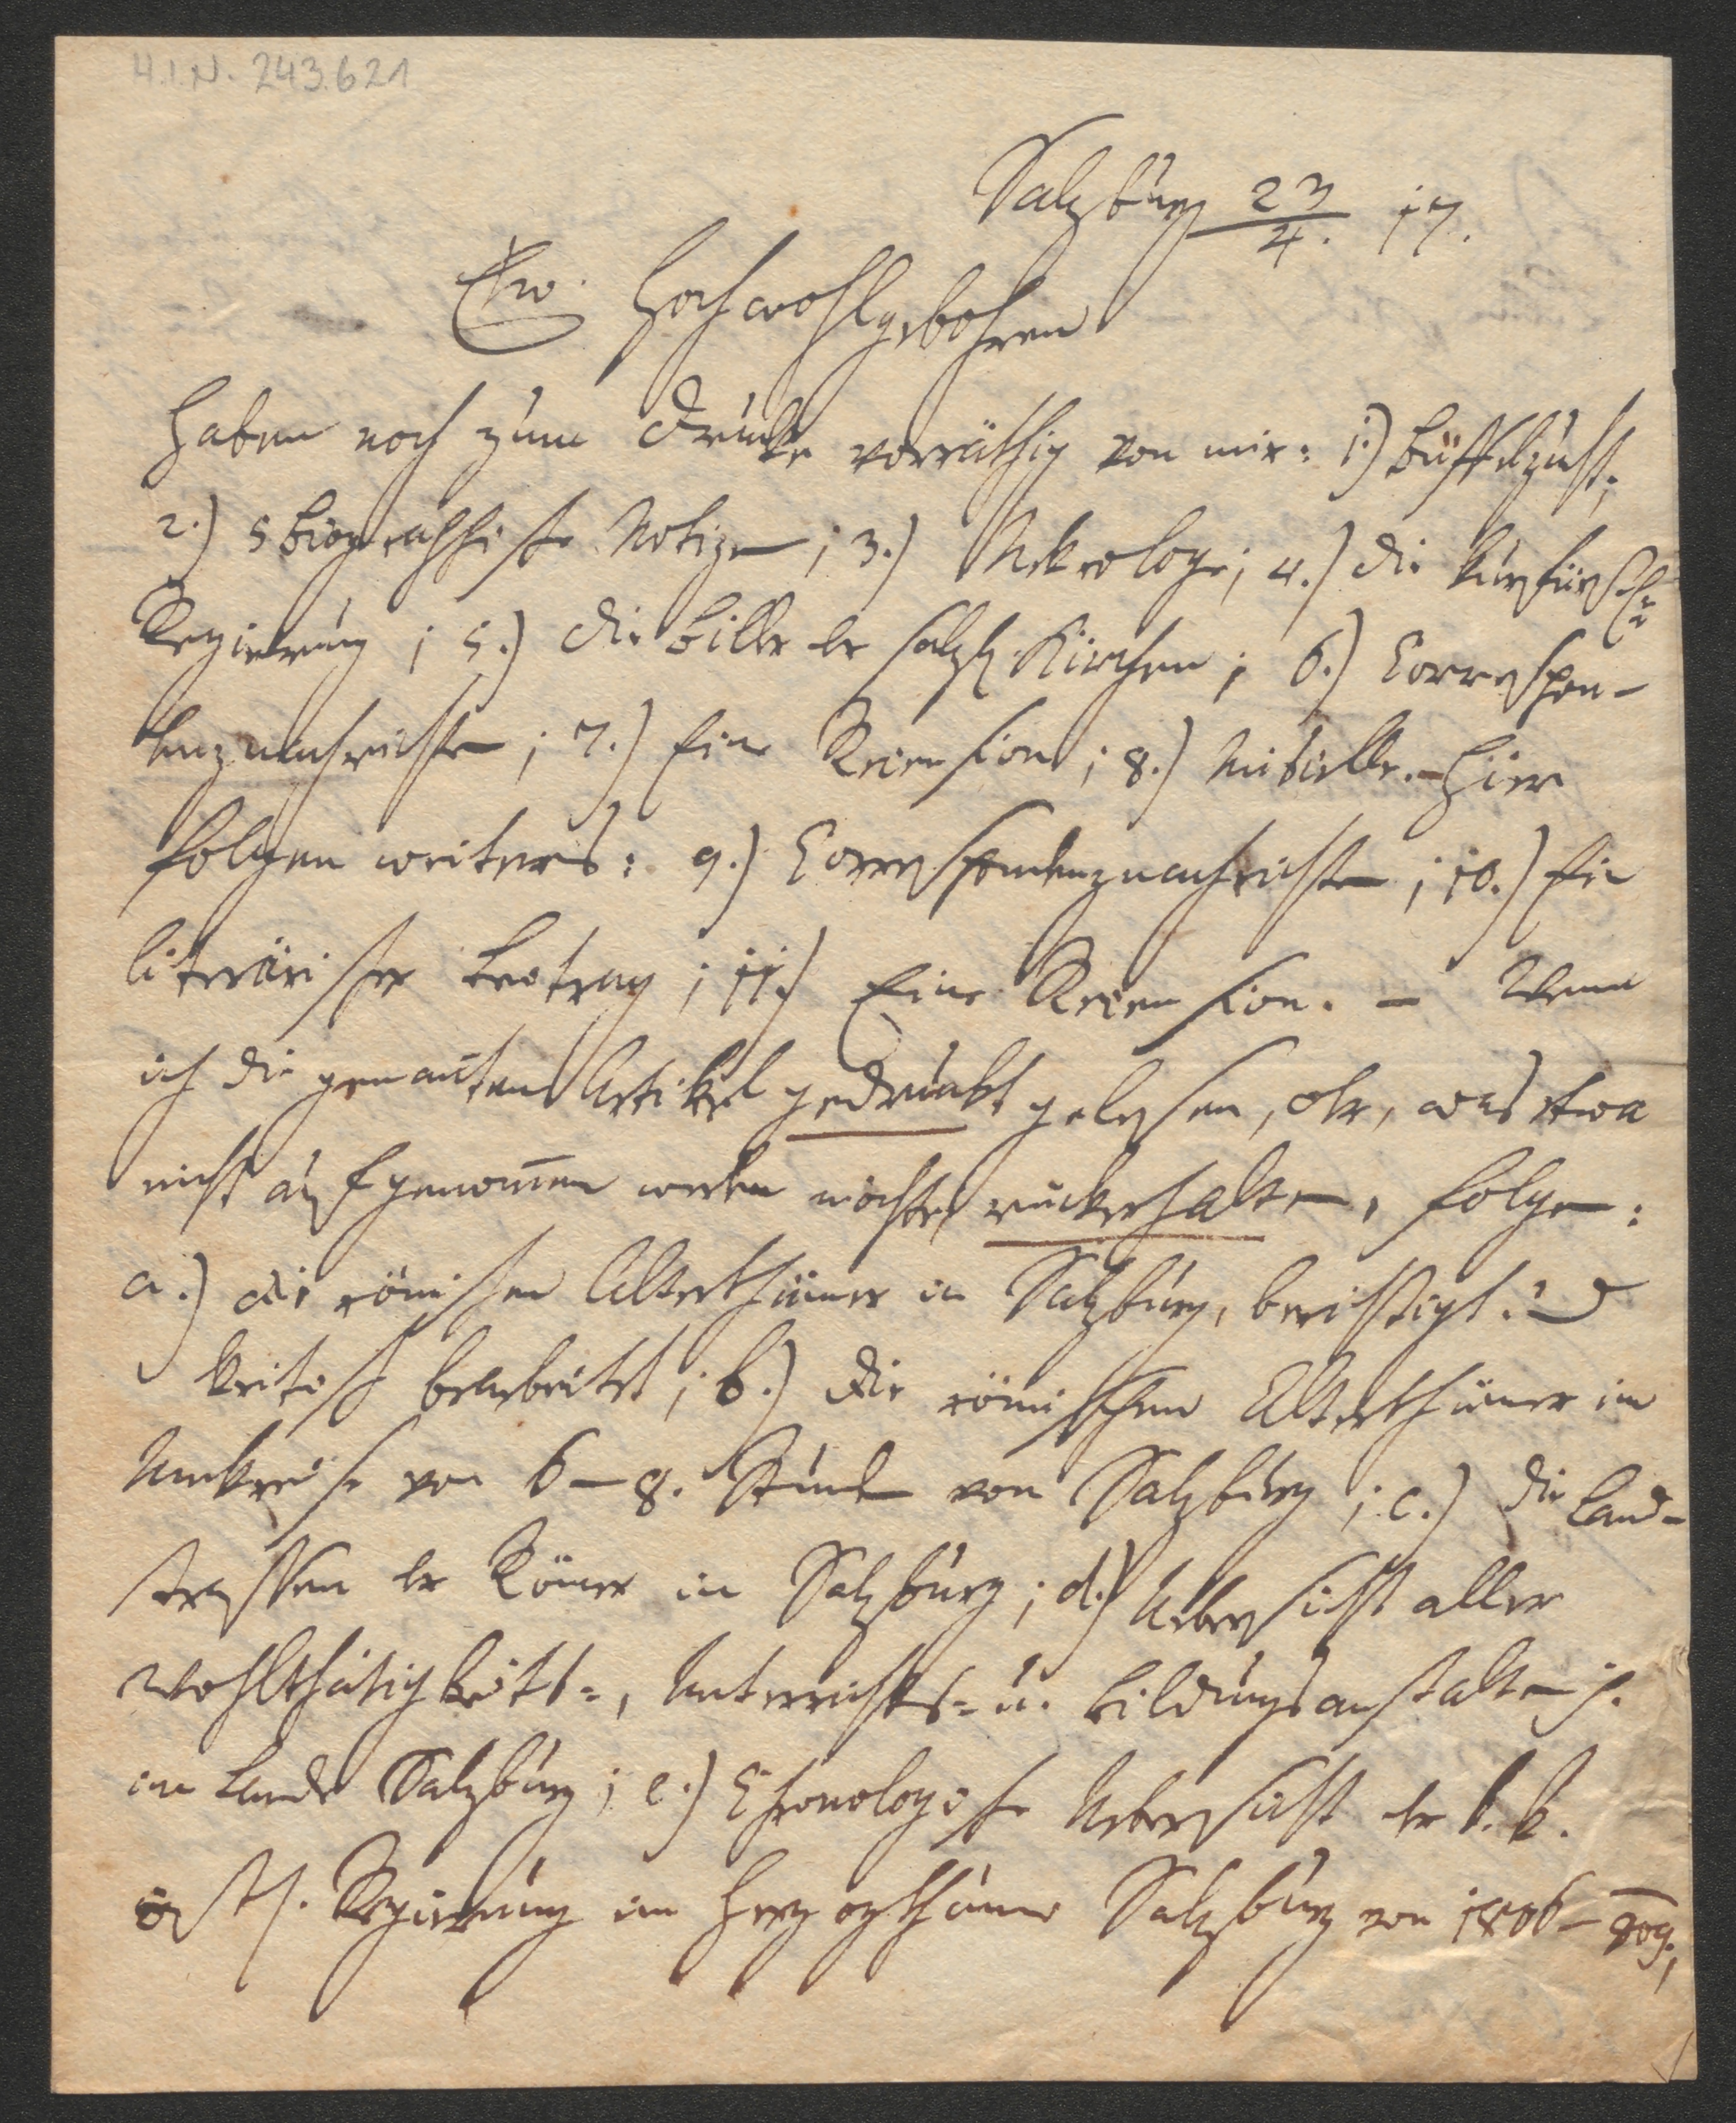 H.I.N. 243.621
Salzburg 23/4. 17.
Ew. Hochwohlgebohren
haben noch zum Drucke vorräthig von mir: 1.)
2.) 5 biographische Notizen; 3.) Nekrologe; 4.) die kurfürstl.
Regierung; 5.) die Bilder der salzb. Kirchen; 6.) Correspon-
denznachrichten; 7.) Eine Recension; 8.) Miscelle. – Hier
folgen weiters: 9.) Correspondenznachrichten; 10.) Ein
literärischer Beitrag; 11.) Eine Recension. – Wenn
ich die genañten Artikel gedruckt gelesen, oder, was etwa
nicht aufgenom̃en werden möchte, rückerhalten, folgen:
a.) die römischen Alterthümer in Salzburg, berichtigt u.
kritisch bearbeitet; b.) die römischen Alterthümer im
Umkreise von 6–8. Stunden von Salzburg; c.) die Land-
strassen der Römer in Salzburg; d.) Uebersicht aller
Wohlthätigkeits-, Unterrichts- u. Bildungsanstalten
im Lande Salzburg; e.) Chronologische Uebersicht der k. k.
östr. Regierung im Herzogthume Salzburg von 1806–809,